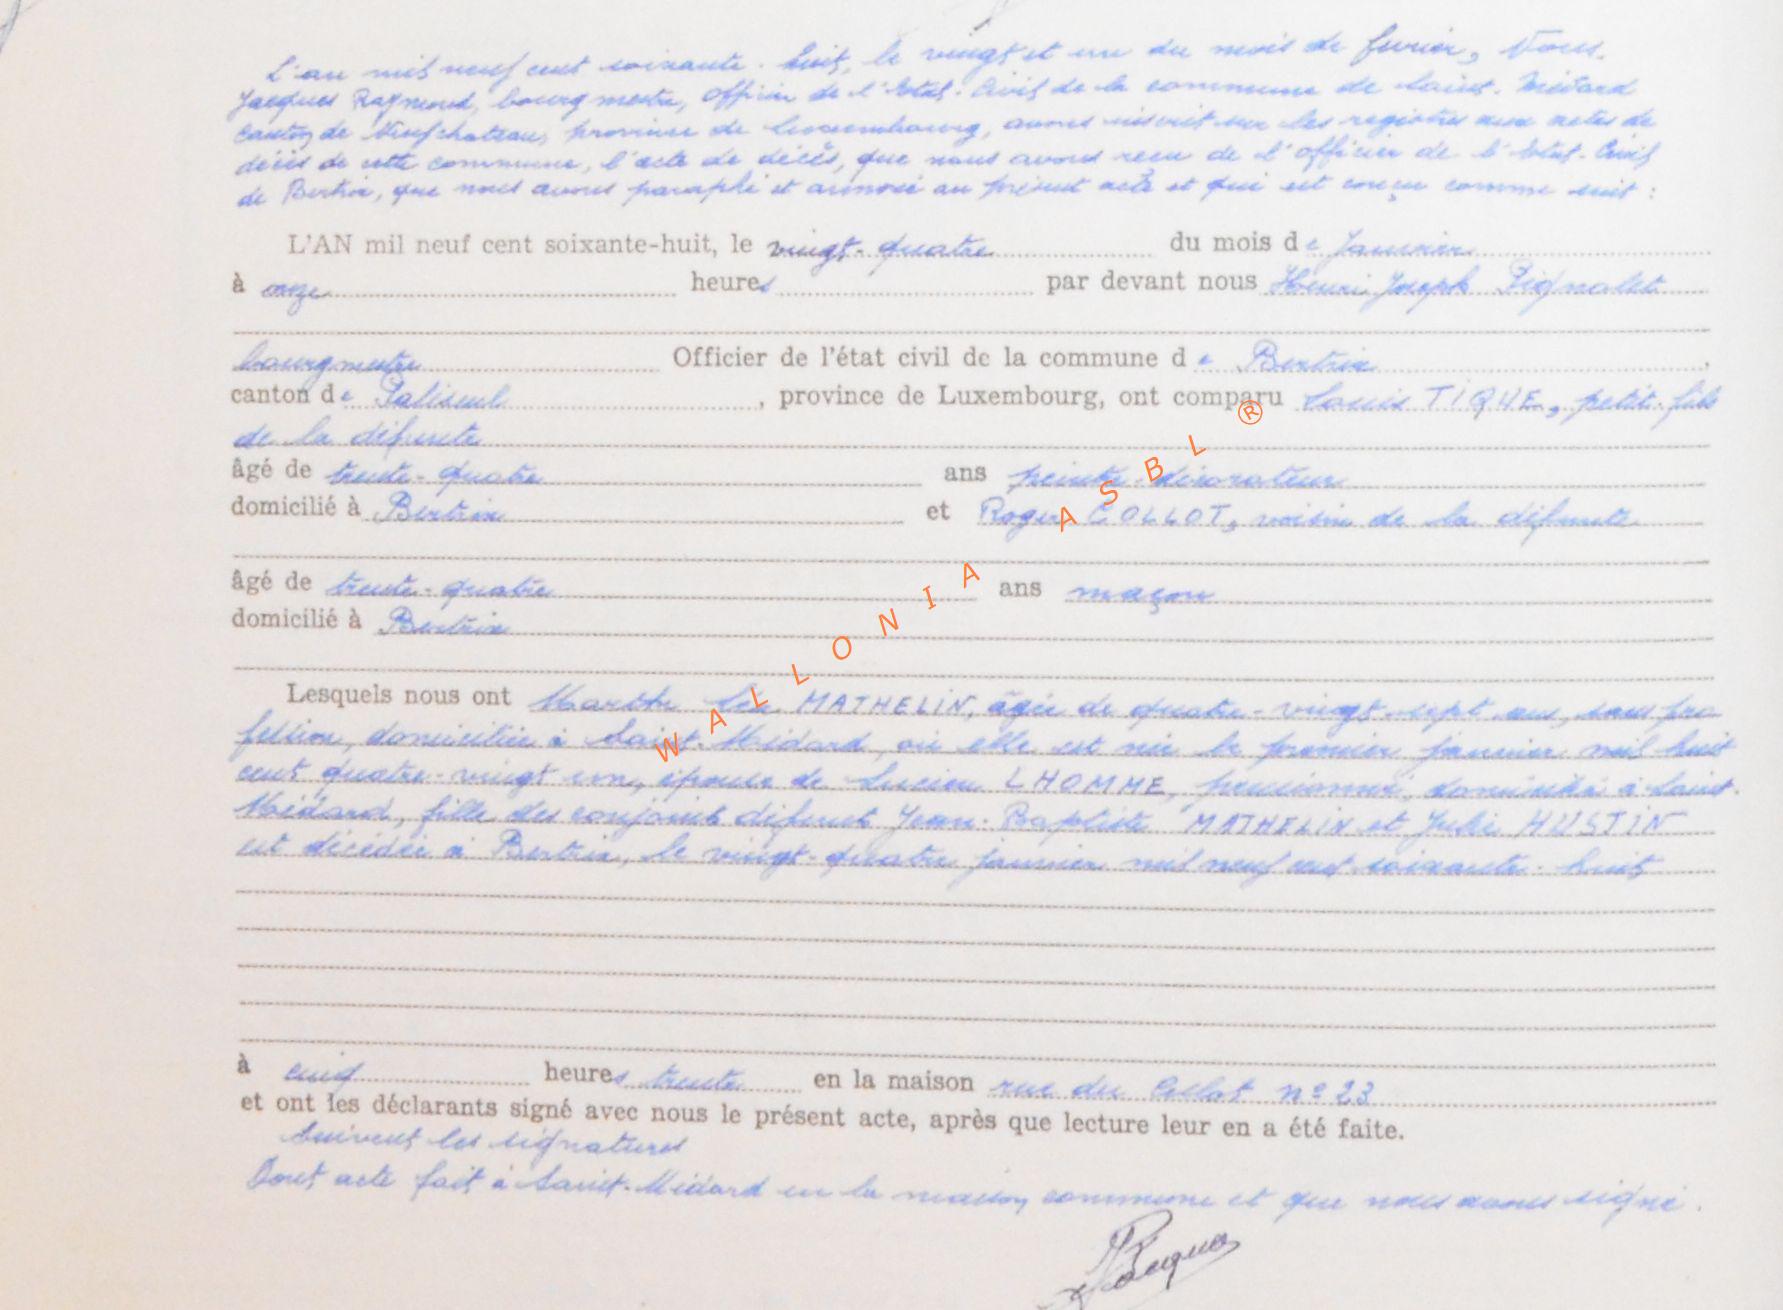 L'an mil neuf cent soixante-huit, le vingt et un du mois de fevrier, Nous
Jacques Raymond, bourgmestre, Officier de l'Etat-Civil de la commune de Saint-Médard
canton de Neufchateau, province de Luxembourg, avons inscrit sur les registres aux actes de
décès de cette commune, l'acte de décès, que nous avons reçu de l'officier de l'Etat-Civil
de Bertrix, que nous avons paraphé et annexé au présent acte et qui est conçu comme suit :
L'AN mil neuf cent soixante-huit, le vingt-quatre du mois de Janvier
à onze heures par devant nous Henri Joseph Pignolet
bourgmestre Officier de l'état civil de la commune de Bertrix,
canton de Paliseul, province de Luxembourg, ont comparu Louis TIQUE, petit-fils
de la défunte
âgé de trente-quatre ans peintre-décorateur
domicilié à Bertrix et Roger COLLOT, voisin de la défunte
âgé de trente-quatre ans maçon
domicilié à Bertrix
Lesquels nous ont Marthe MATHELIN, âgée de quatre-vingt-sept ans, sans pro
fession, domiciliée à Saint-Médard, où elle est née le premier janvier mil huit
cent quatre-vingt un, épouse de Lucien LHOMME, pensionné, domicilié à Saint-
Médard, fille des conjoints défunts Jean-Baptiste MATHELIN et Julie HUSTIN
est décédée à Bertrix, le vingt-quatre janvier mil neuf cent soixante-huit
à cinq heures trente en la maison rue du Cullot n° 23
et ont les déclarants signé avec nous le présent acte, après que lecture leur en a été faite.
Suivent les signatures
Dont acte fait à Saint-Médard en la maison commune et que nous avons signé.
Jacques
WALLONIA ASBL ®